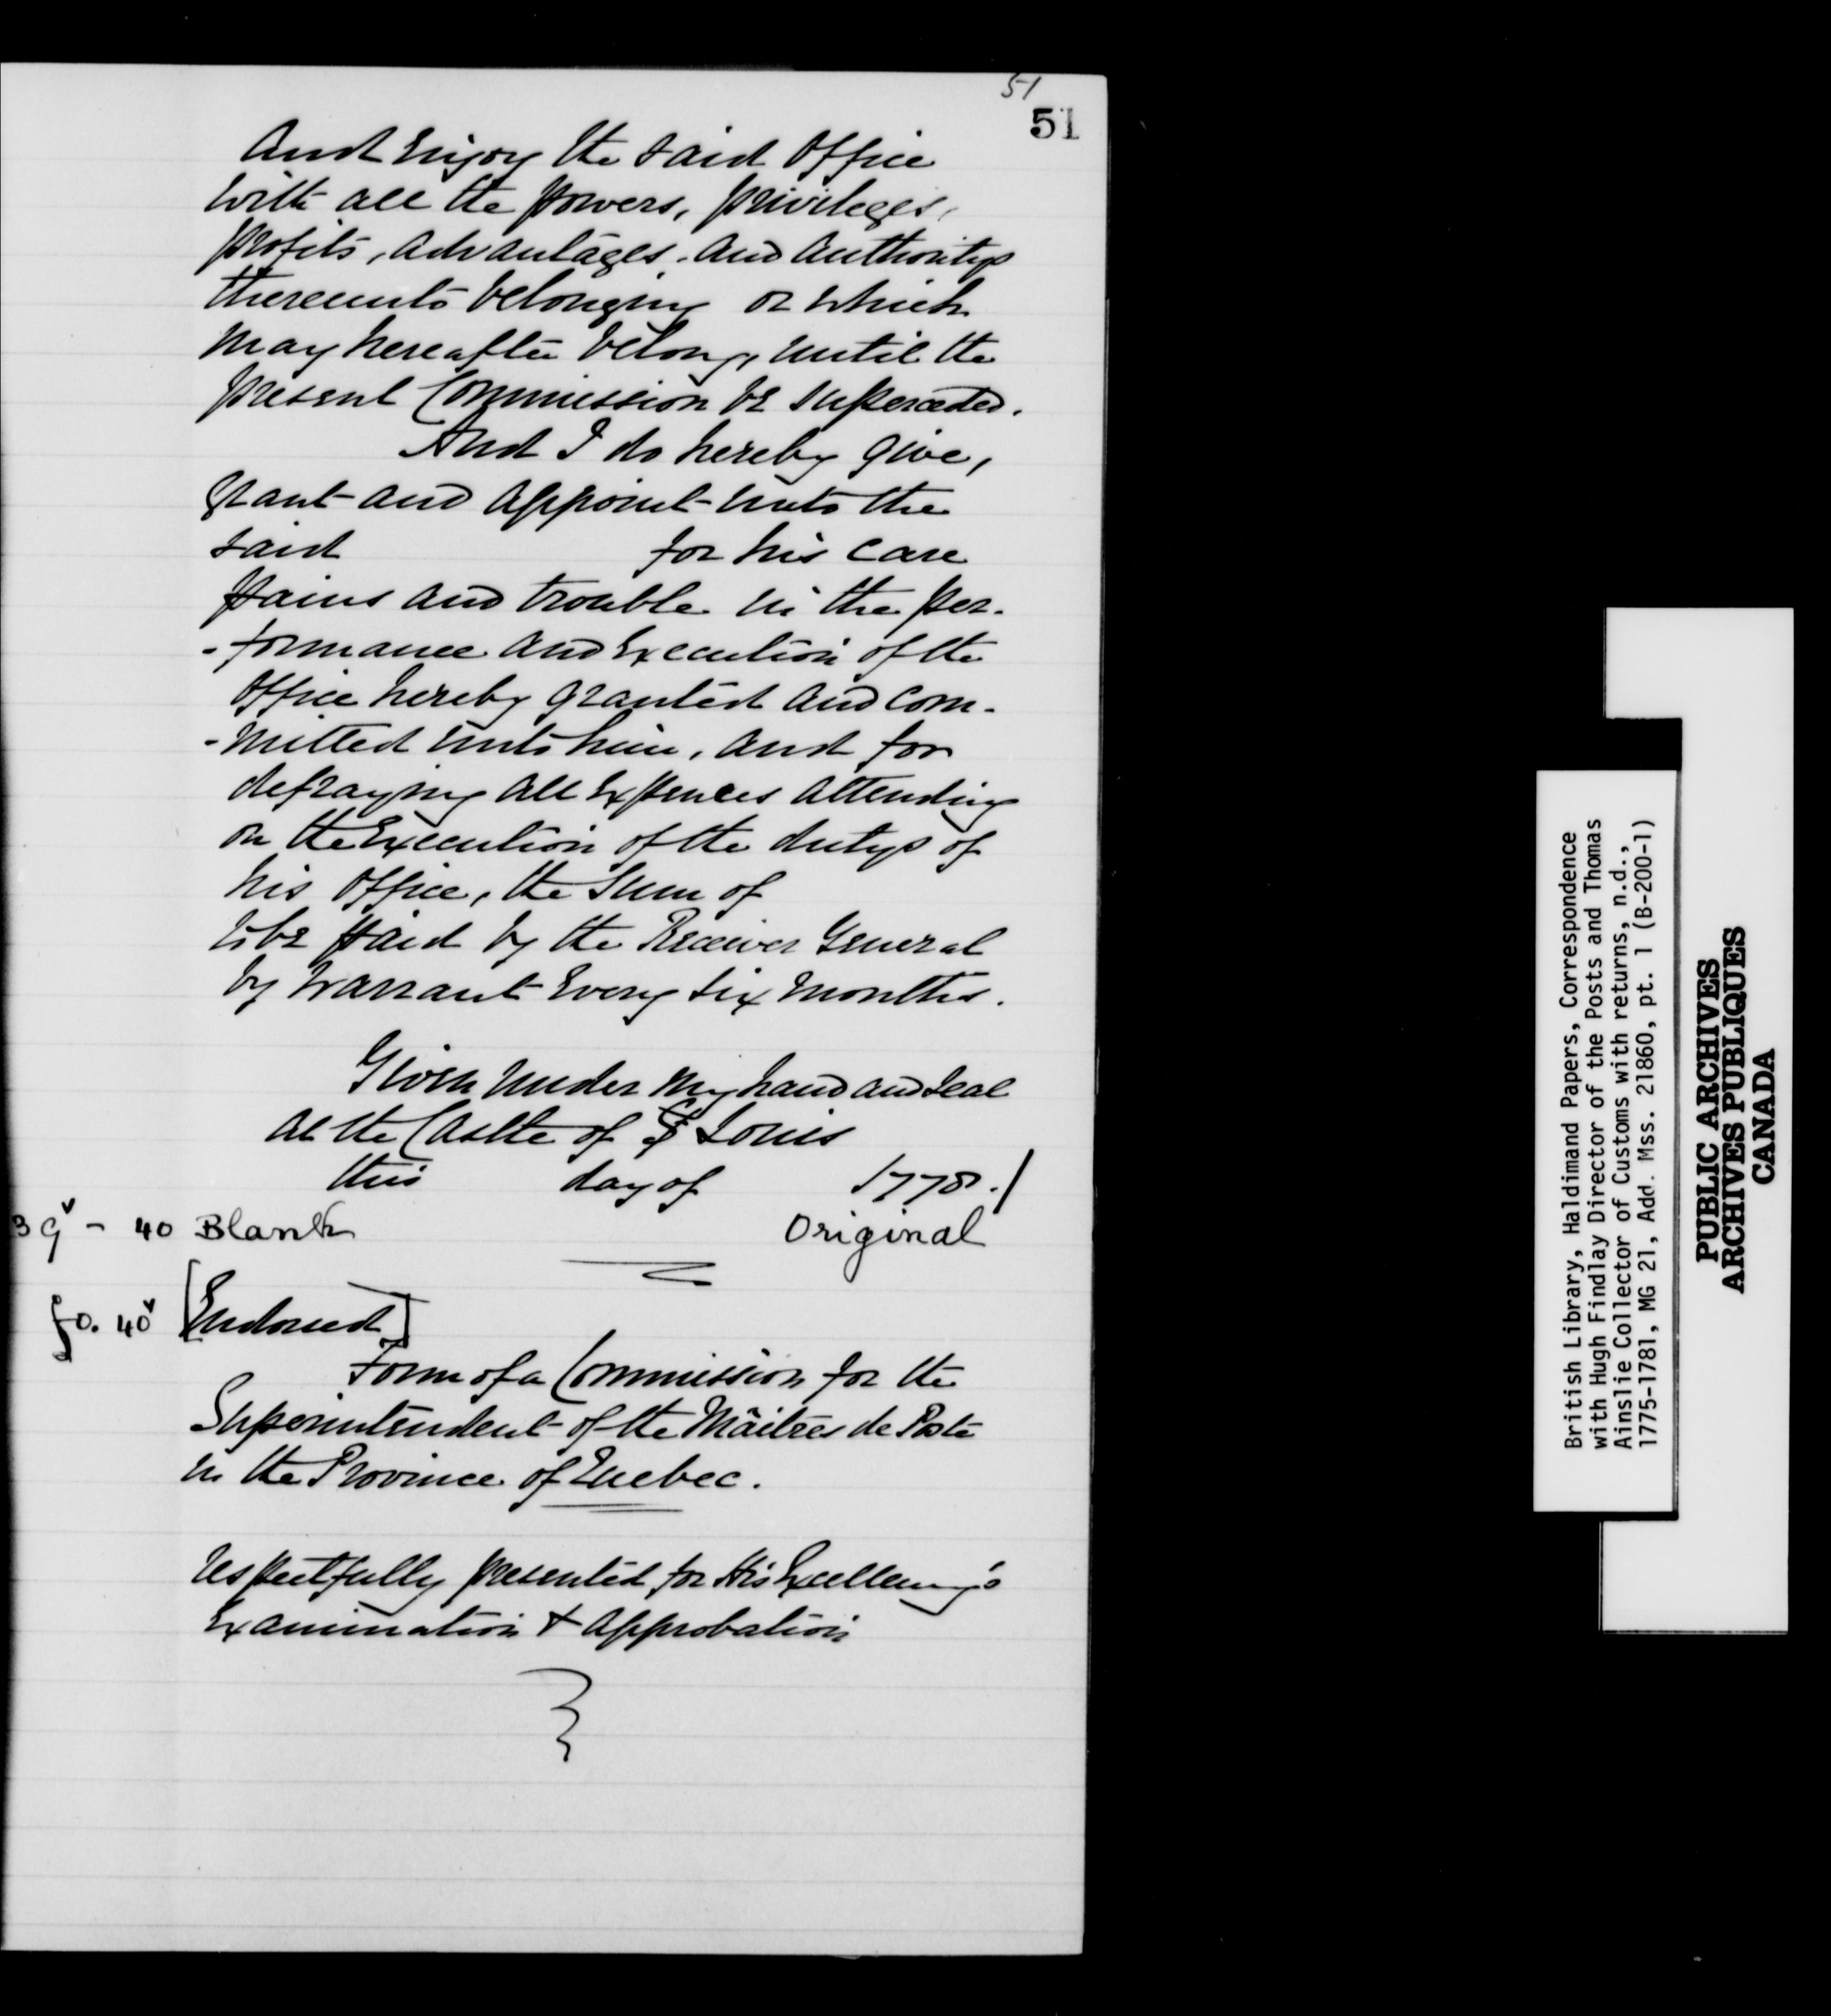 51
51
And Enjoy the said Office
with all the powers, privileges,
profits, advantages, and authoritys
thereunto belonging or which
may hereafter belong, until the
present Commission be superceded.
And I do hereby give,
grant and appoint unto the
said for his care
pains and trouble in the per-
-formance and Execution of the
Office hereby granted and com-
-mitted unto him, and for
defraying all Expences attending
on the Execution of the dutys of
his Office, the Sum of
to be paid by the Receiver General
by Warrant Every Six Months.
Given under my hand and seal
at the Castle of St Louis
this day of 1778./
39v - 40 Blank Original
fo. 40v [Endorsed]
Form of a Commission for the
Superintendent of the Maîtres de Poste
in the Province of Quebec.
respectfully presented for His Excellency's
Examination & Approbation
British Library, Haldimand Papers, Correspondence
with Hugh Findlay Director of the Posts and Thomas
Ainslie Collector of Customs with returns, n.d.,
1775-1781, MG 21, Add. Mss. 21860, pt. 1 (B-200-1)
PUBLIC ARCHIVES
ARCHIVES PUBLIQUES
CANADA